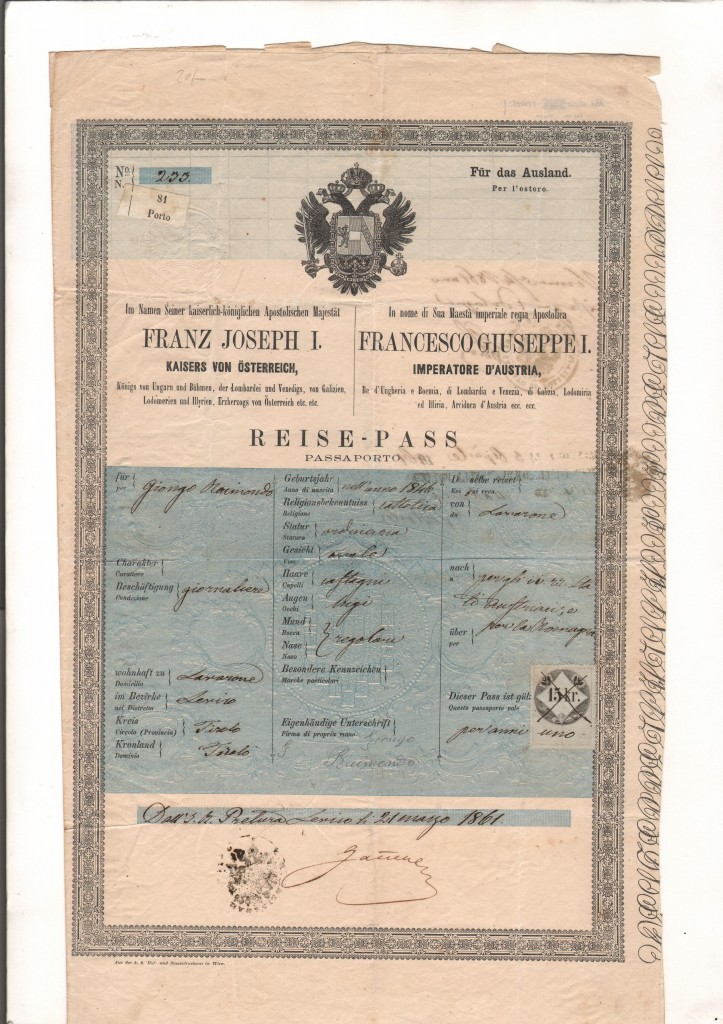 No.
N.
233.
81
Porto
Für das Ausland.
Per l'estero.
Im Namen Seiner kaiserlich-königlichen Apostolischen Majestät
FRANZ JOSEPH I.
KAISERS VON ÖSTERREICH,
Königs von Ungarn und Böhmen, der Lombardei und Venedigs, von Galizien,
Lodomerien und Illyrien, Erzherzogs von Österreich etc. etc.
In nome di Sua Maestà imperiale regia Apostolica
FRANCESCO GIUSEPPE I.
IMPERATORE D'AUSTRIA,
Re d'Ungheria e Boemia, di Lombardia e Venezia, di Galizia, Lodomiria
ed Illiria, Arciduca d'Austria ecc. ecc.
REISE-PASS
PASSAPORTO
für
per
Giongo Raimondo
Charakter
Carattere
Beschäftigung
Condizione
giornaliere
wohnhaft zu
Domicilio
Lavarone
im Bezirke
nel Distretto
Levico
Kreis
Circolo (Provincia)
Tirolo
Kronland
Dominio
Tirolo
Geburtsjahr
Anno di nascita
nell'anno
Religionsbekenntniss
Religione
cattolica
Statur
Statura
ordinaria
Gesicht
Viso
ovale
Haare
Capelli
castagni
Augen
Occhi
bigi
Mund
Bocca
Nase
Naso
regolare
Besondere Kennzeichen
Marche particolari
Eigenhändige Unterschrift
Firma di proprio mano
Giongo
Raimondo
selbe reiset
von
da
Lavarone
nach
a
pegli
ti austriaci e
über
per
per la Romagna
15 kr.
Dieser Pass ist gült
Questo passaporto vale
per anni uno
Dall' I. R. Pretura Levico li 21 marzo 1861
Aus der k. k. Hof- und Staatsdruckerei in Wien.